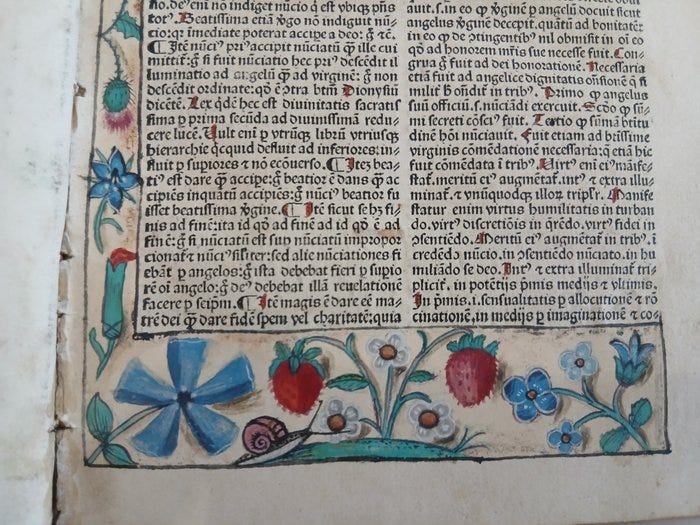 tot. Beatissima etiā vgo nō indiguit nū-
cio: qr īmediate poterat accipe a deo: g̃ ⁊c.
¶ Itē nūci⁹ pri⁹ accipit nūciatū q̃ʒ ille cui
mittit̃: g̃ si fuit nūciatio hec pri⁹ descēdit il
luminatio ad angelū q̃ʒ ad virginē: g̃ non
descēdit ordinate: qd̓ ē ɔtra btm̃ Dionysiū
dicētē. Lex qd̓ē hec est diuinitatis sacratis
sima ꝑ prima secūda ad diuinissimā redu-
cere lucē. Vult eni ꝑ vtrūqʒ librū vtriusqʒ
hierarchie qcquid defluit ad inferiores: in-
fluit ꝑ supiores ⁊ nō ecōuerso. ¶ Itez bea-
ti⁹ est dare q̃ʒ accipe: g̃ beatior ē dans q̃ʒ ac
cipiēs inquātū accipiēs: g̃ nūci⁹ beatior fu
isset beatissima v̓gine. ¶ Itē sicut se hʒ fi-
nis ad finē: ita id qd̓ ad finē ad id qd̓ ē ad
finē: g̃ si nūciatū est suꝑ nūciatū impropor
cionat̃ ⁊ nūci⁹ sil̓iter: sed alie nūciationes fi
ebāt ꝑ angelos: g̃ ista debebat fieri ꝑ supio
rē oi angelo: g̃ de⁹ debebat illā reuelationē
facere ꝑ seipm̃. ¶ Itē magis ē dare eē ma-
trē dei q̃ʒ dare fidē spem vel charitatē: quia
angelus v̓ginē decepit. quātū ad bonitatē
in eo qꝫ de ɔtingentib⁹ nil obmisit in oī eo
qd̓ ad honorem mr̃is sue necesse fuit. Con-
grua g̃ fuit ad dei honorationē. Necessaria
etiā fuit ad angelice dignitatis onsionē q̃ si
milit̃ h̓ ondit̃ in trib⁹. Primo qꝫ angelus
suū officiū. s. nūciādi exercuit. Scdo qꝫ sū-
mi secreti cōsci⁹ fuit. Tertio qꝫ sūma btitu
dinē hōi nūciauit. Fuit etiam ad btissime
virginis cōmēdationē necessaria: q̃ etiā hic
fuit cōmēdata i trib⁹. Virt⁹ eni ei⁹ māife-
stat̃. meritū ei⁹ augmētat̃. int⁹ ⁊ extra illu-
minat̃. ⁊ vnūquodqʒ illoꝝ tripl̓r. Manife
statur enim virtus humilitatis in turban
do. virt⁹ discretiōis in q̃rēdo. virt⁹ fidei in
ɔsentiēdo. Meritū ei⁹ augmētat̃ in trib⁹. ī
credēdo nūcio. in ɔsentiēdo nūciato. in hu
miliādo se deo. Int⁹ ⁊ extra illuminat̃ tri-
plicit̃. in potētijs p̃mis medijs ⁊ vltimis.
In p̃mis. i. sensualitatis ꝑ allocutionē ⁊ rō
cinationē. in medijs ꝑ imaginationē ⁊ co-